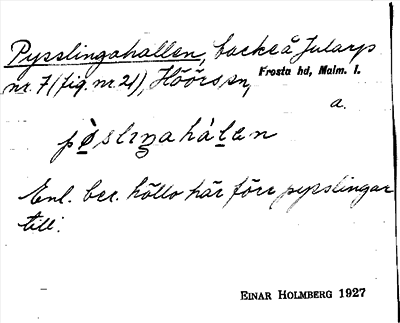 Pysslingahallen, backe å Jularp
nr. 7 (fig. nr 21), Höörs sn,
Frosta hd, Malm. l.
a.
pø̀slıŋahàlen
Enl. ber. höllo här förr pysslingar
till.
EINAR HOLMBERG 1927